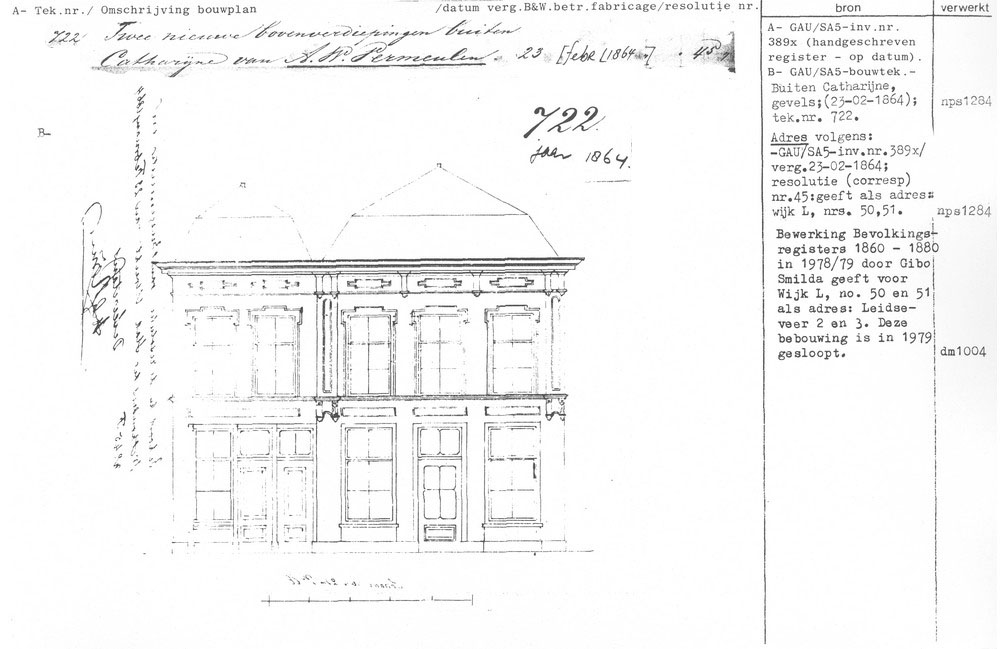 A- Tek.nr./ Omschrijving bouwplan /datum verg.B&W.betr.fabricage/resolutie nr.
722 Twee nieuwe bovenverdiepingen buiten
Catharijne van A. W. Vermeulen. 23 [febr [1864.] . 45
B-
722.
jaar 1864.
bron
A- GAU/SA5-inv.nr.
389x (handgeschreven
register - op datum).
B- GAU/SA5-bouwtek.-
Buiten Catharijne,
gevels;(23-02-1864);
tek.nr. 722.
Adres volgens:
-GAU/SA5-inv.nr.389x/
verg.23-02-1864;
resolutie (corresp)
nr.45:geeft als adres:
wijk L, nrs. 50,51.
Bewerking Bevolkings-
registers 1860 - 1880
in 1978/79 door Gibo
Smilda geeft voor
Wijk L, no. 50 en 51
als adres: Leidse-
veer 2 en 3. Deze
bebouwing is in 1979
gesloopt.
verwerkt
nps1284
nps1284
dm1004